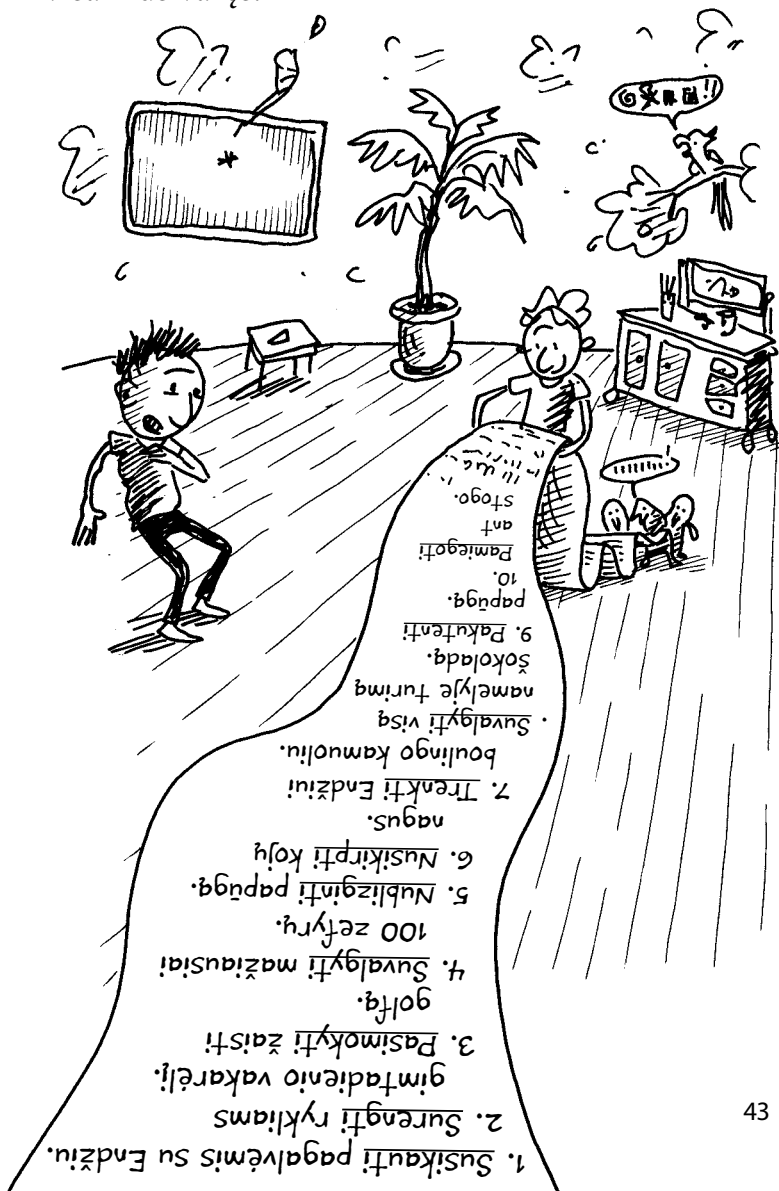 1. Susikauti pagalvėmis su Endžiu.
2. Surengti rykliams
gimtadienio vakarėlį.
3. Pasimokyti žaisti
golfą.
4. Suvalgyti mažiausiai
100 zefyrų.
5. Nublizginti papūgą.
6. Nusikirpti kojų
nagus.
7. Trenkti Endžiui
boulingo kamuoliu.
. Suvalgyti visą
namelyje turimą
šokoladą.
9. Pakutenti
papūgą.
10.
Pamiegoti
ant
stogo.
43